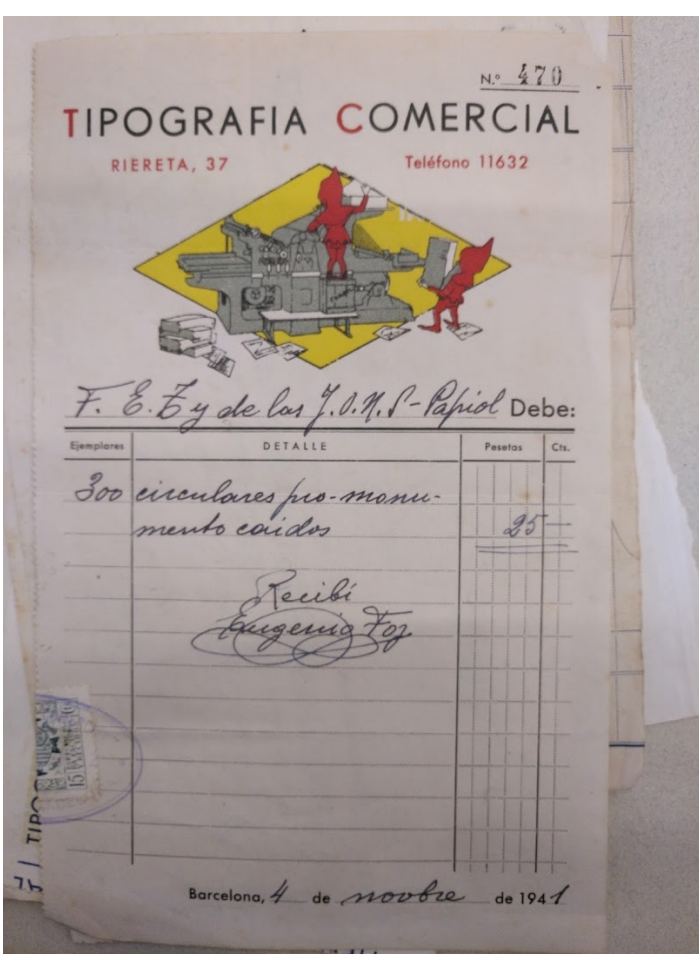 N.º 470
TIPOGRAFIA COMERCIAL
RIERETA, 37
Teléfono 11632
F. E. T y de las J.O.N.S - Papiol Debe:
Ejemplares DETALLE Pesetas Cts.
300 circulares pro-monu-
mento caidos 25 —
Recibí
Eugenio Foz
TIPOG
Barcelona, 4 de novbre de 1941